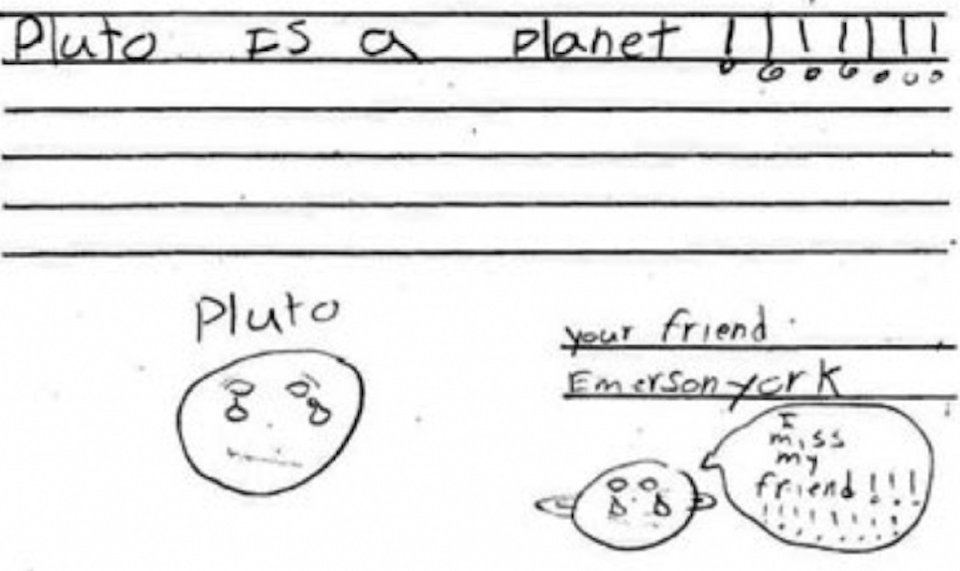 Pluto Is a planet !!!!!!!
Pluto
your friend
Emerson york
I
miss
my
friend !!!
!!!!!!!!